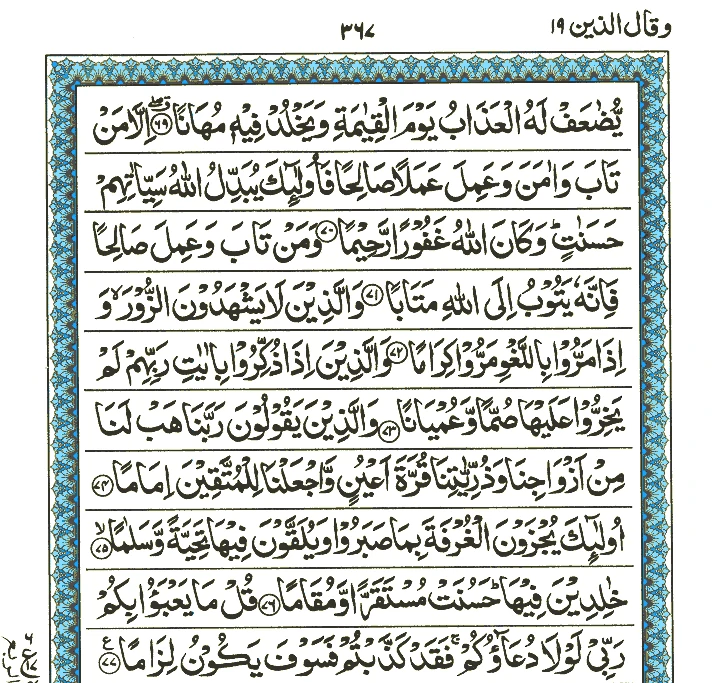 وقال الذين ١٩ ٣٦٧
يُّضٰعَفْ لَهُ الْعَذَابُ يَوْمَ الْقِيٰمَةِ وَيَخْلُدْ فِيْهٖ مُهَانًا ﴿٦٩﴾ اِلَّا مَنْ
تَابَ وَاٰمَنَ وَعَمِلَ عَمَلًا صَالِحًا فَاُولٰٓئِكَ يُبَدِّلُ اللّٰهُ سَيِّاٰتِهِمْ
حَسَنٰتٍ ؕ وَكَانَ اللّٰهُ غَفُوْرًا رَّحِيْمًا ﴿٧٠﴾ وَمَنْ تَابَ وَعَمِلَ صَالِحًا
فَاِنَّهٗ يَتُوْبُ اِلَى اللّٰهِ مَتَابًا ﴿٧١﴾ وَالَّذِيْنَ لَا يَشْهَدُوْنَ الزُّوْرَ ۙ وَ
اِذَا مَرُّوْا بِاللَّغْوِ مَرُّوْا كِرَامًا ﴿٧٢﴾ وَالَّذِيْنَ اِذَا ذُكِّرُوْا بِاٰيٰتِ رَبِّهِمْ لَمْ
يَخِرُّوْا عَلَيْهَا صُمًّا وَّعُمْيَانًا ﴿٧٣﴾ وَالَّذِيْنَ يَقُوْلُوْنَ رَبَّنَا هَبْ لَنَا
مِنْ اَزْوَاجِنَا وَذُرِّيّٰتِنَا قُرَّةَ اَعْيُنٍ وَّاجْعَلْنَا لِلْمُتَّقِيْنَ اِمَامًا ﴿٧٤﴾
اُولٰٓئِكَ يُجْزَوْنَ الْغُرْفَةَ بِمَا صَبَرُوْا وَيُلَقَّوْنَ فِيْهَا تَحِيَّةً وَّسَلٰمًا ۙ ﴿٧٥﴾
خٰلِدِيْنَ فِيْهَا ؕ حَسُنَتْ مُسْتَقَرًّا وَّمُقَامًا ﴿٧٦﴾ قُلْ مَا يَعْبَؤُا بِكُمْ
رَبِّيْ لَوْلَا دُعَآؤُكُمْ ۚ فَقَدْ كَذَّبْتُمْ فَسَوْفَ يَكُوْنُ لِزَامًا ﴿٧٧﴾ ع